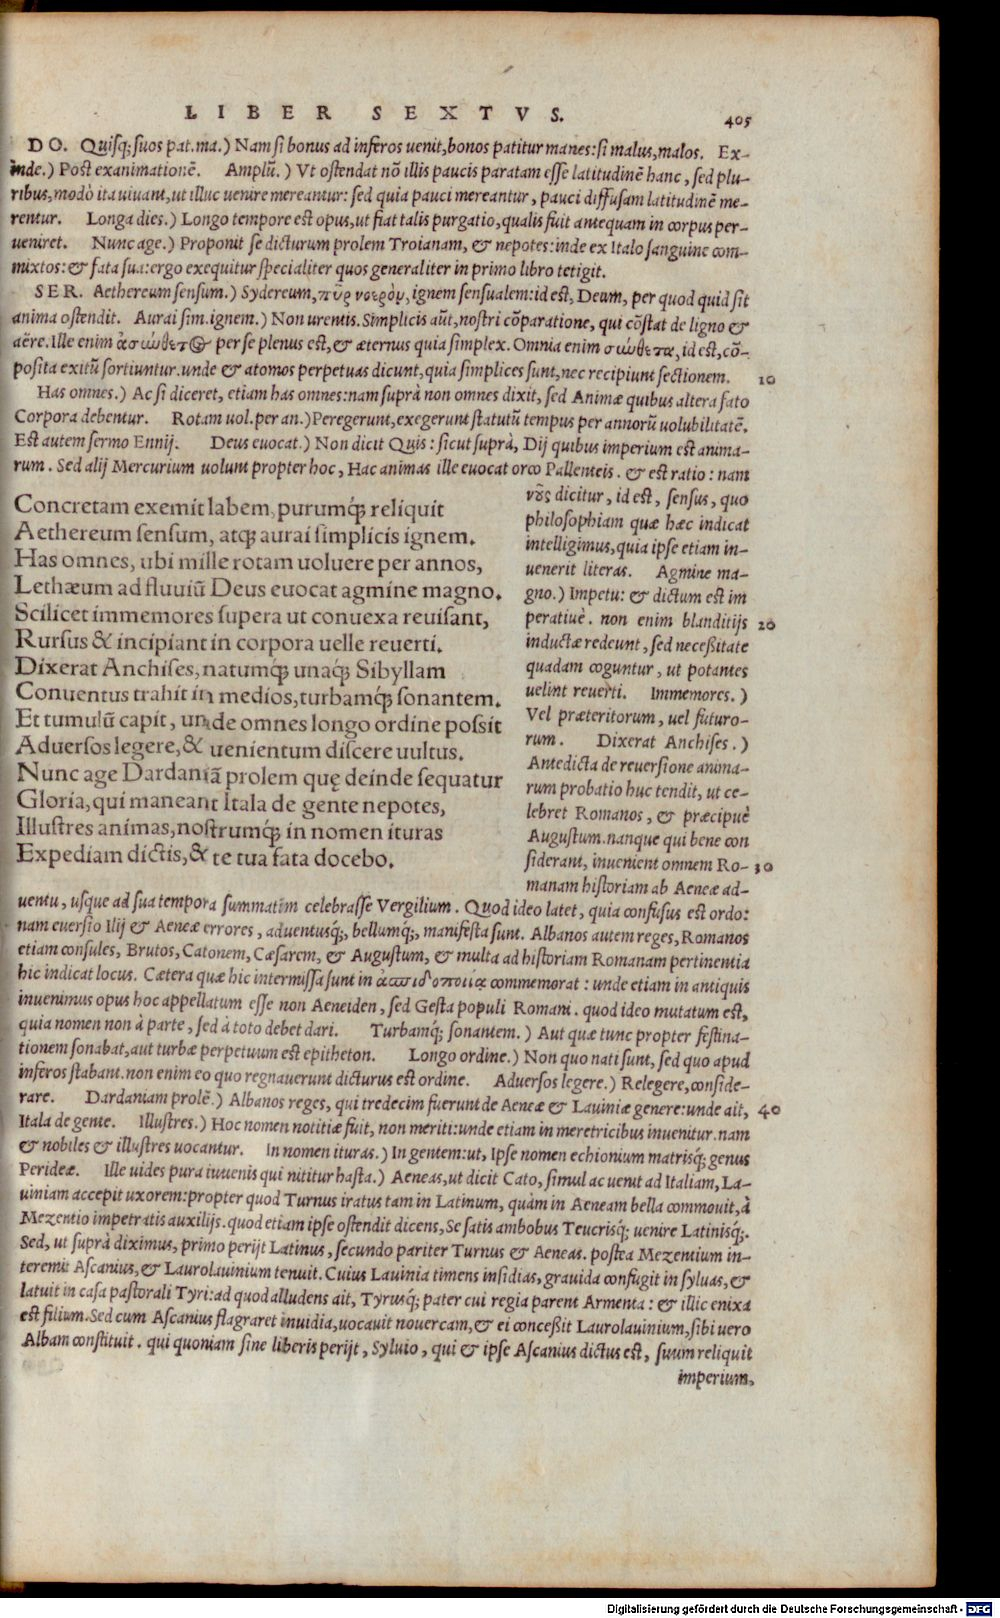 LIBER SEXTVS.
405
DO. Quisq; suos pat.ma.) Nam si bonus ad inferos uenit, bonos patitur manes: si malus, malos. Ex-
inde.) Post exanimationē. Amplū.) Vt ostendat nō illis paucis paratam esse latitudinē hanc, sed plu-
ribus, modò ita uiuant, ut illuc uenire mereantur: sed quia pauci mereantur, pauci diffusam latitudinē me-
rentur. Longa dies.) Longo tempore est opus, ut fiat talis purgatio, qualis fuit antequam in corpus per-
ueniret. Nunc age.) Proponit se dicturum prolem Troianam, & nepotes: inde ex Italo sanguine com-
mixtos: & fata sua: ergo exequitur specialiter quos generaliter in primo libro tetigit.
SER. Aethereum sensum.) Sydereum, πῦρ νοερὸν, ignem sensualem: id est, Deum, per quod quid sit
anima ostendit. Aurai sim. ignem.) Non urentis. Simplicis aūt, nostri cōparatione, qui cōstat de ligno &
aëre. Ille enim ἀσύνθετ@ per se plenus est, & æternus quia simplex. Omnia enim σύνθετα, id est, cō-
posita exitū sortiuntur. unde & atomos perpetuas dicunt, quia simplices sunt, nec recipiunt sectionem. 10
Has omnes.) Ac si diceret, etiam has omnes: nam suprà non omnes dixit, sed Animæ quibus altera fato
Corpora debentur. Rotam uol. per an.) Peregerunt, exegerunt statutū tempus per annorū uolubilitatē.
Est autem sermo Ennij. Deus euocat.) Non dicit Quis: sicut suprà, Dij quibus imperium est anima-
rum. Sed alij Mercurium uolunt propter hoc, Hac animas ille euocat orco Pallenteis. & est ratio: nam
Concretam exemit labem, purumq́; reliquit
Aethereum sensum, atq; aurai simplicis ignem.
Has omnes, ubi mille rotam uoluere per annos,
Lethæum ad fluuiū Deus euocat agmine magno.
Scilicet immemores supera ut conuexa reuisant,
Rursus & incipiant in corpora uelle reuerti.
Dixerat Anchises, natumq́; unaq́; Sibyllam
Conuentus trahit in medios, turbamq́; sonantem.
Et tumulū capit, unde omnes longo ordine possit
Aduersos legere, & uenientum discere uultus.
Nunc age Dardaniā prolem quę deinde sequatur
Gloria, qui maneant Itala de gente nepotes,
Illustres animas, nostrumq́; in nomen ituras
Expediam dictis, & te tua fata docebo.
νοῦς dicitur, id est, sensus, quo
philosophiam quæ hæc indicat
intelligimus, quia ipse etiam in-
uenerit literas. Agmine ma-
gno.) Impetu: & dictum est im
peratiuè. non enim blanditijs 20
inductæ redeunt, sed necessitate
quadam coguntur, ut potantes
uelint reuerti. Immemores.)
Vel præteritorum, uel futuro-
rum. Dixerat Anchises.)
Antedicta de reuersione anima-
rum probatio huc tendit, ut ce-
lebret Romanos, & præcipuè
Augustum. nanque qui bene con
siderant, inuenient omnem Ro- 30
manam historiam ab Aeneæ ad-
uentu, usque ad sua tempora summatim celebrasse Vergilium. Quod ideo latet, quia confusus est ordo:
nam euersio Ilij & Aeneæ errores, aduentusq́;, bellumq́;, manifesta sunt. Albanos autem reges, Romanos
etiam consules, Brutos, Catonem, Cæsarem, & Augustum, & multa ad historiam Romanam pertinentia
hic indicat locus. Cætera quæ hic intermissa sunt in ἀσπιδοποιίᾳ commemorat: unde etiam in antiquis
inuenimus opus hoc appellatum esse non Aeneiden, sed Gesta populi Romani. quod ideo mutatum est,
quia nomen non à parte, sed à toto debet dari. Turbamq́; sonantem.) Aut quæ tunc propter festina-
tionem sonabat, aut turbæ perpetuum est epitheton. Longo ordine.) Non quo nati sunt, sed quo apud
inferos stabant. non enim eo quo regnauerunt dicturus est ordine. Aduersos legere.) Relegere, conside-
rare. Dardaniam prolē.) Albanos reges, qui tredecim fuerunt de Aeneæ & Lauiniæ genere: unde ait, 40
Itala de gente. Illustres.) Hoc nomen notitiæ fuit, non meriti: unde etiam in meretricibus inuenitur. nam
& nobiles & illustres uocantur. In nomen ituras.) In gentem: ut, Ipse nomen echionium matrisq́; genus
Perideæ. Ille uides pura iuuenis qui nititur hasta.) Aeneas, ut dicit Cato, simul ac uenit ad Italiam, La-
uiniam accepit uxorem: propter quod Turnus iratus tam in Latinum, quàm in Aeneam bella commouit, à
Mezentio impetratis auxilijs. quod etiam ipse ostendit dicens, Se satis ambobus Teucrisq́; uenire Latinisq́;.
Sed, ut suprà diximus, primo perijt Latinus, secundo pariter Turnus & Aeneas. postea Mezentium in-
teremit Ascanius, & Laurolauinium tenuit. Cuius Lauinia timens insidias, grauida confugit in syluas, &
latuit in casa pastorali Tyri: ad quod alludens ait, Tyrusq́; pater cui regia parent Armenta: & illic enixa
est filium. Sed cum Ascanius flagraret inuidia, uocauit nouercam, & ei concessit Laurolauinium, sibi uero
Albam constituit. qui quoniam sine liberis perijt, Syluio, qui & ipse Ascanius dictus est, suum reliquit
imperium,
Digitalisierung gefördert durch die Deutsche Forschungsgemeinschaft - DFG